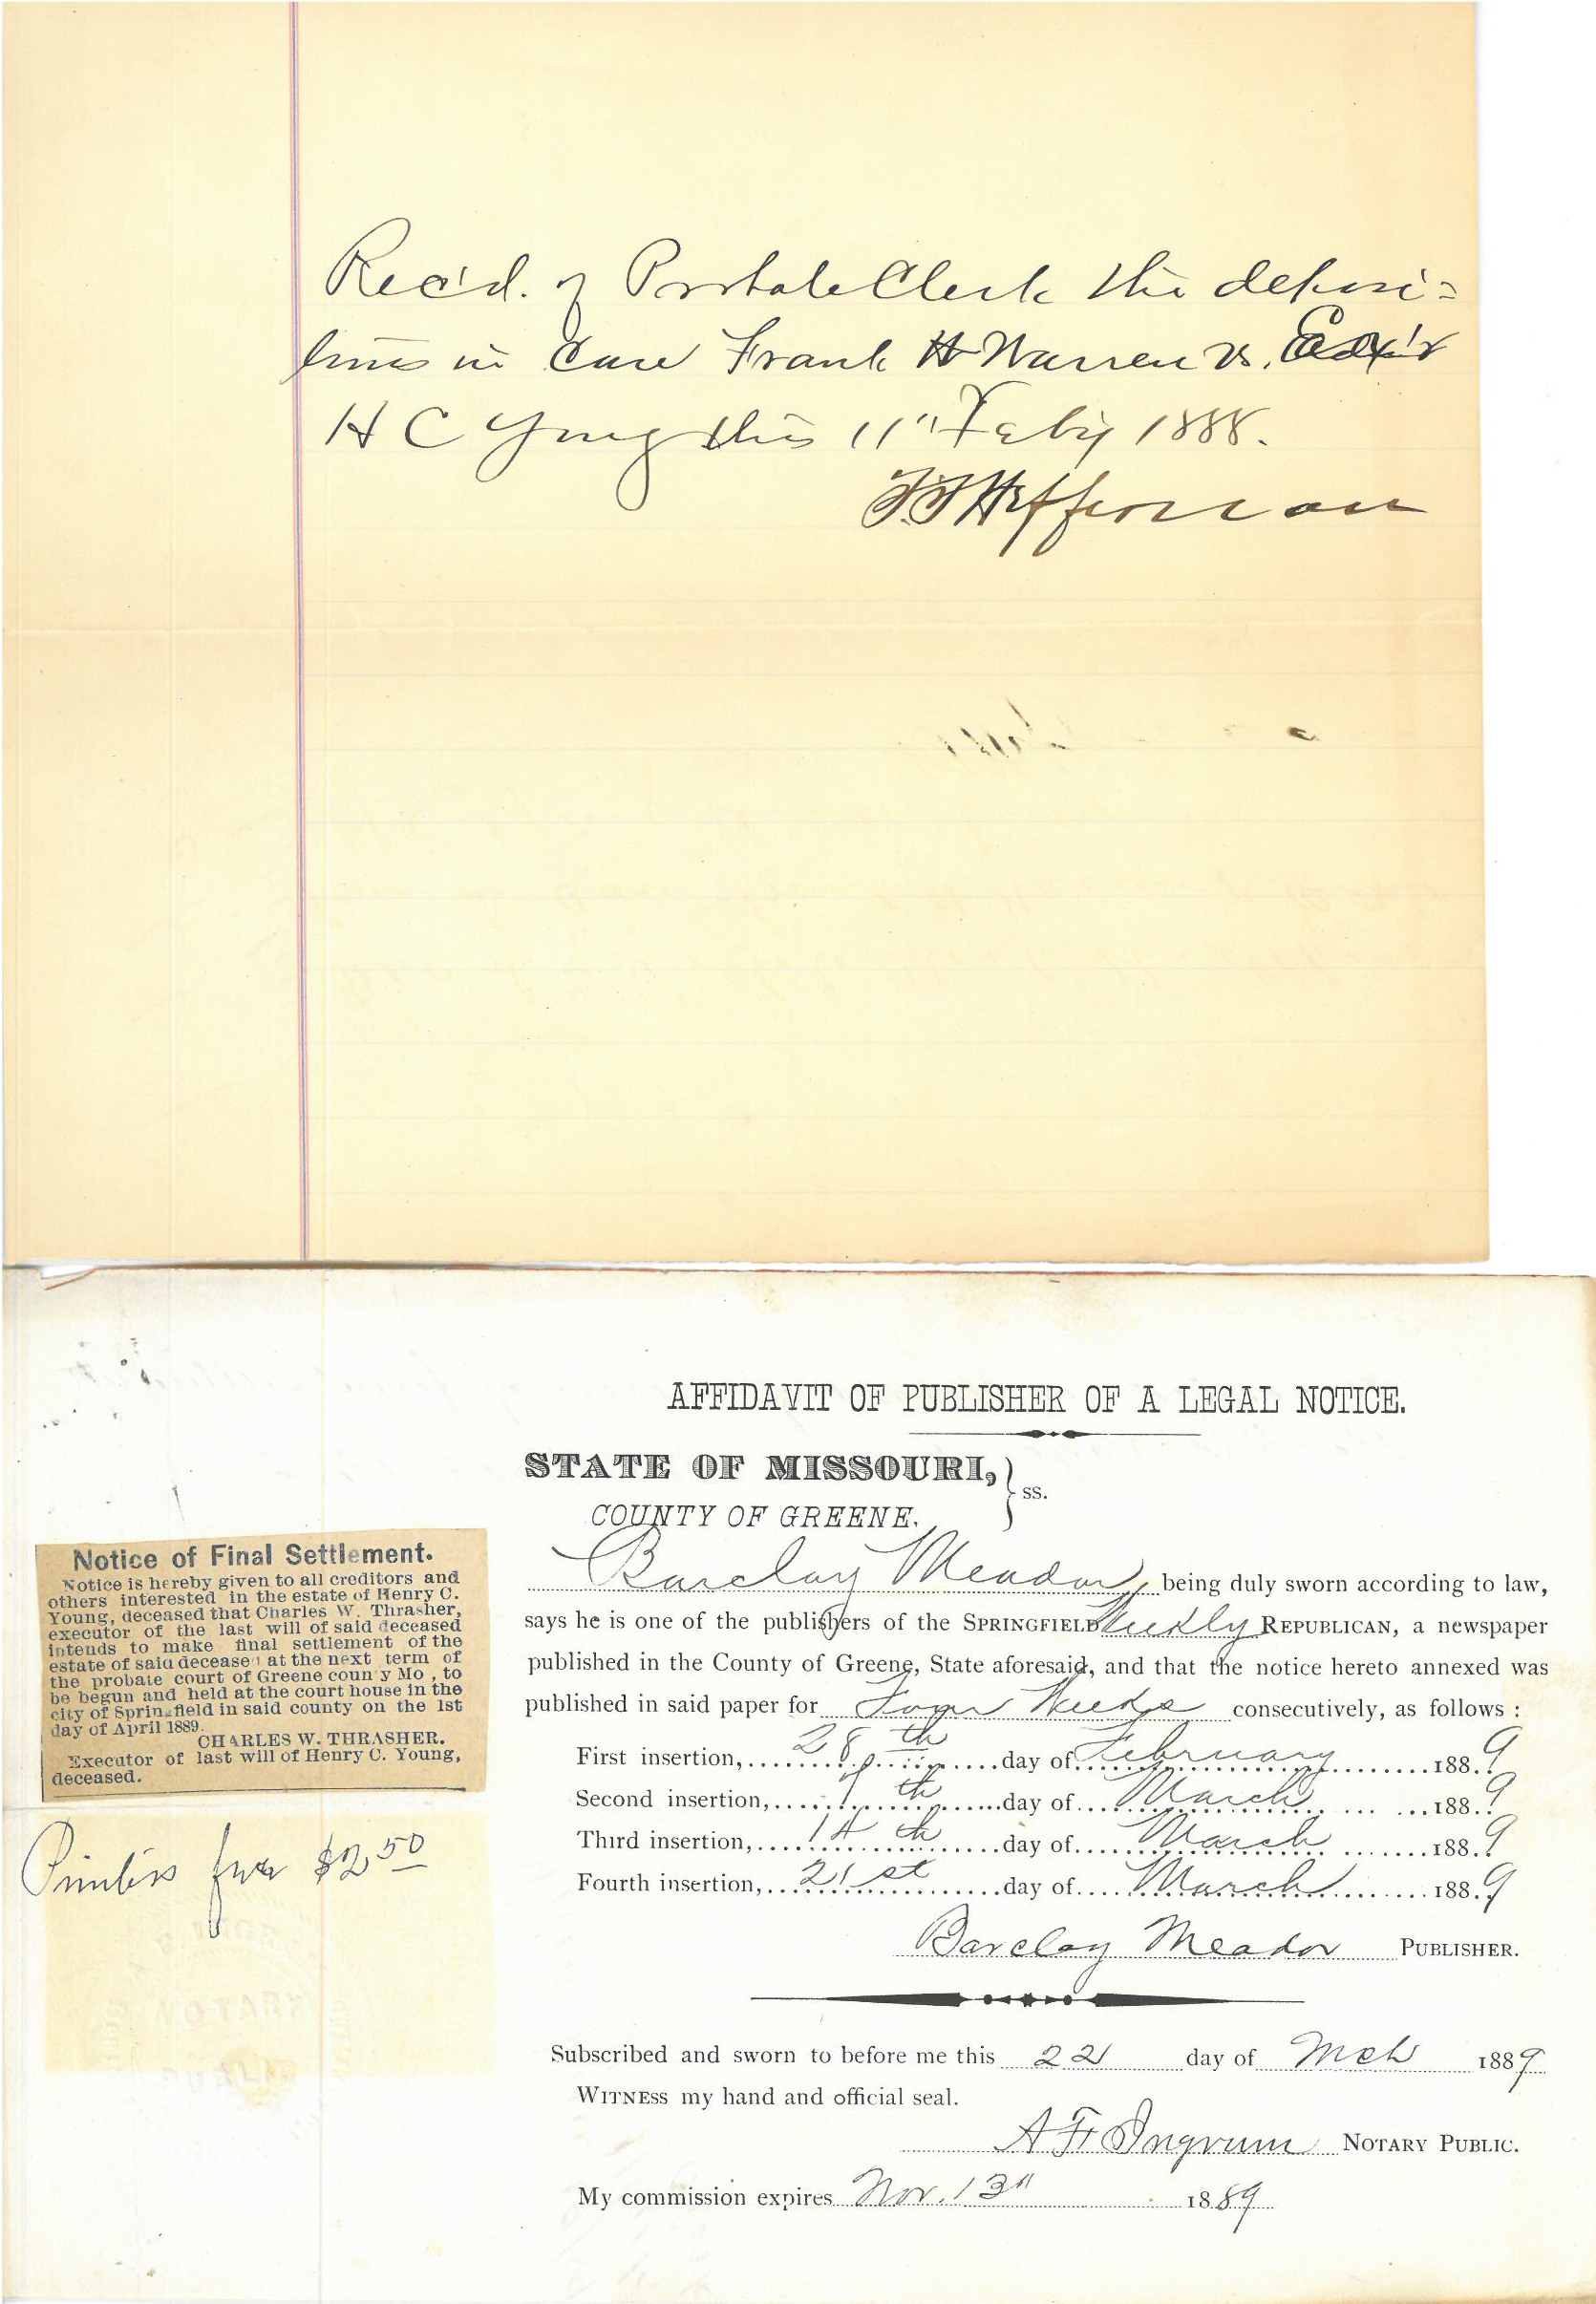 Rec'd. of Probate Clerk the deposi=
tions in case Frank H Warren vs. Exr
H C Young this 11" Feby 1888.
Heffernan
AFFIDAVIT OF PUBLISHER OF A LEGAL NOTICE.
STATE OF MISSOURI, } ss.
COUNTY OF GREENE.
Barclay Meador, being duly sworn according to law,
says he is one of the publishers of the SPRINGFIELD Weekly REPUBLICAN, a newspaper
published in the County of Greene, State aforesaid, and that the notice hereto annexed was
published in said paper for Four Weeks consecutively, as follows :
First insertion, 28th day of February 1889
Second insertion, 7th day of March 1889
Third insertion, 14th day of March 1889
Fourth insertion, 21st day of March 1889
Barclay Meador PUBLISHER.
Subscribed and sworn to before me this 22 day of Mch 1889
WITNESS my hand and official seal.
A F Ingram NOTARY PUBLIC.
My commission expires Nov. 13" 1889
Notice of Final Settlement.
Notice is hereby given to all creditors and
others interested in the estate of Henry C.
Young, deceased that Charles W. Thrasher,
executor of the last will of said deceased
intends to make final settlement of the
estate of said deceased at the next term of
the probate court of Greene coun y Mo , to
be begun and held at the court house in the
city of Springfield in said county on the 1st
day of April 1889.
CHARLES W. THRASHER.
Executor of last will of Henry C. Young,
deceased.
Printers fee $2 50